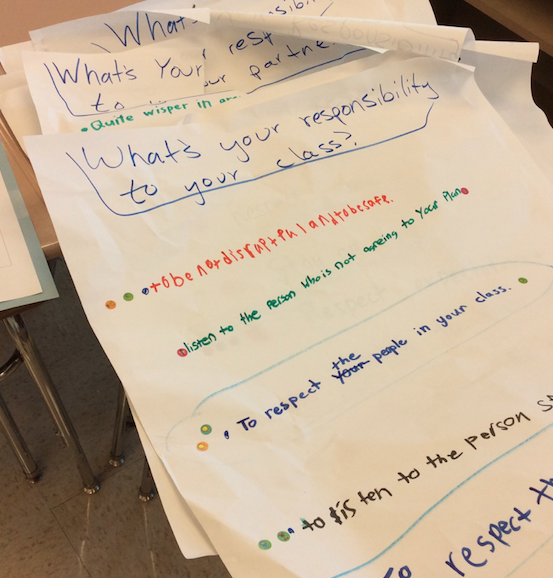 What's
What's Your resp
to your partne
• Quite wisper in
What's your responsibility
to your class?
• to be not disruptful and to be safe.
listen to the Person Who is not agreing to Your Plan
the
• To respect your people in your class.
• to listen to the person
To respect th